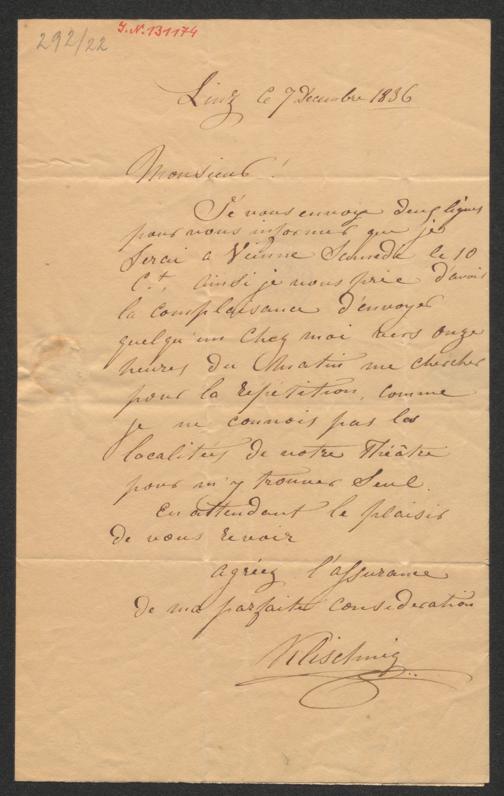 292/22
J.N. 131174
Linz le 7 Decembre 1836
Monsieur!
Je vous envoye deux lignes
pour vous informer que je
serai a Vienne Samedi le 10
C.t, ainsi je vous prie d'avoir
la complaisance d'envoyer
quelqu'un chez moi vers onze
heures du Matin me chercher
pour la repétition, comme
je ne connois pas les
localitées de votre Théâtre
pour m'y trouver Seul.
En attendant le plaisir
de vous revoir
agréez l'assurance
de ma parfaite consideration
Klischnig